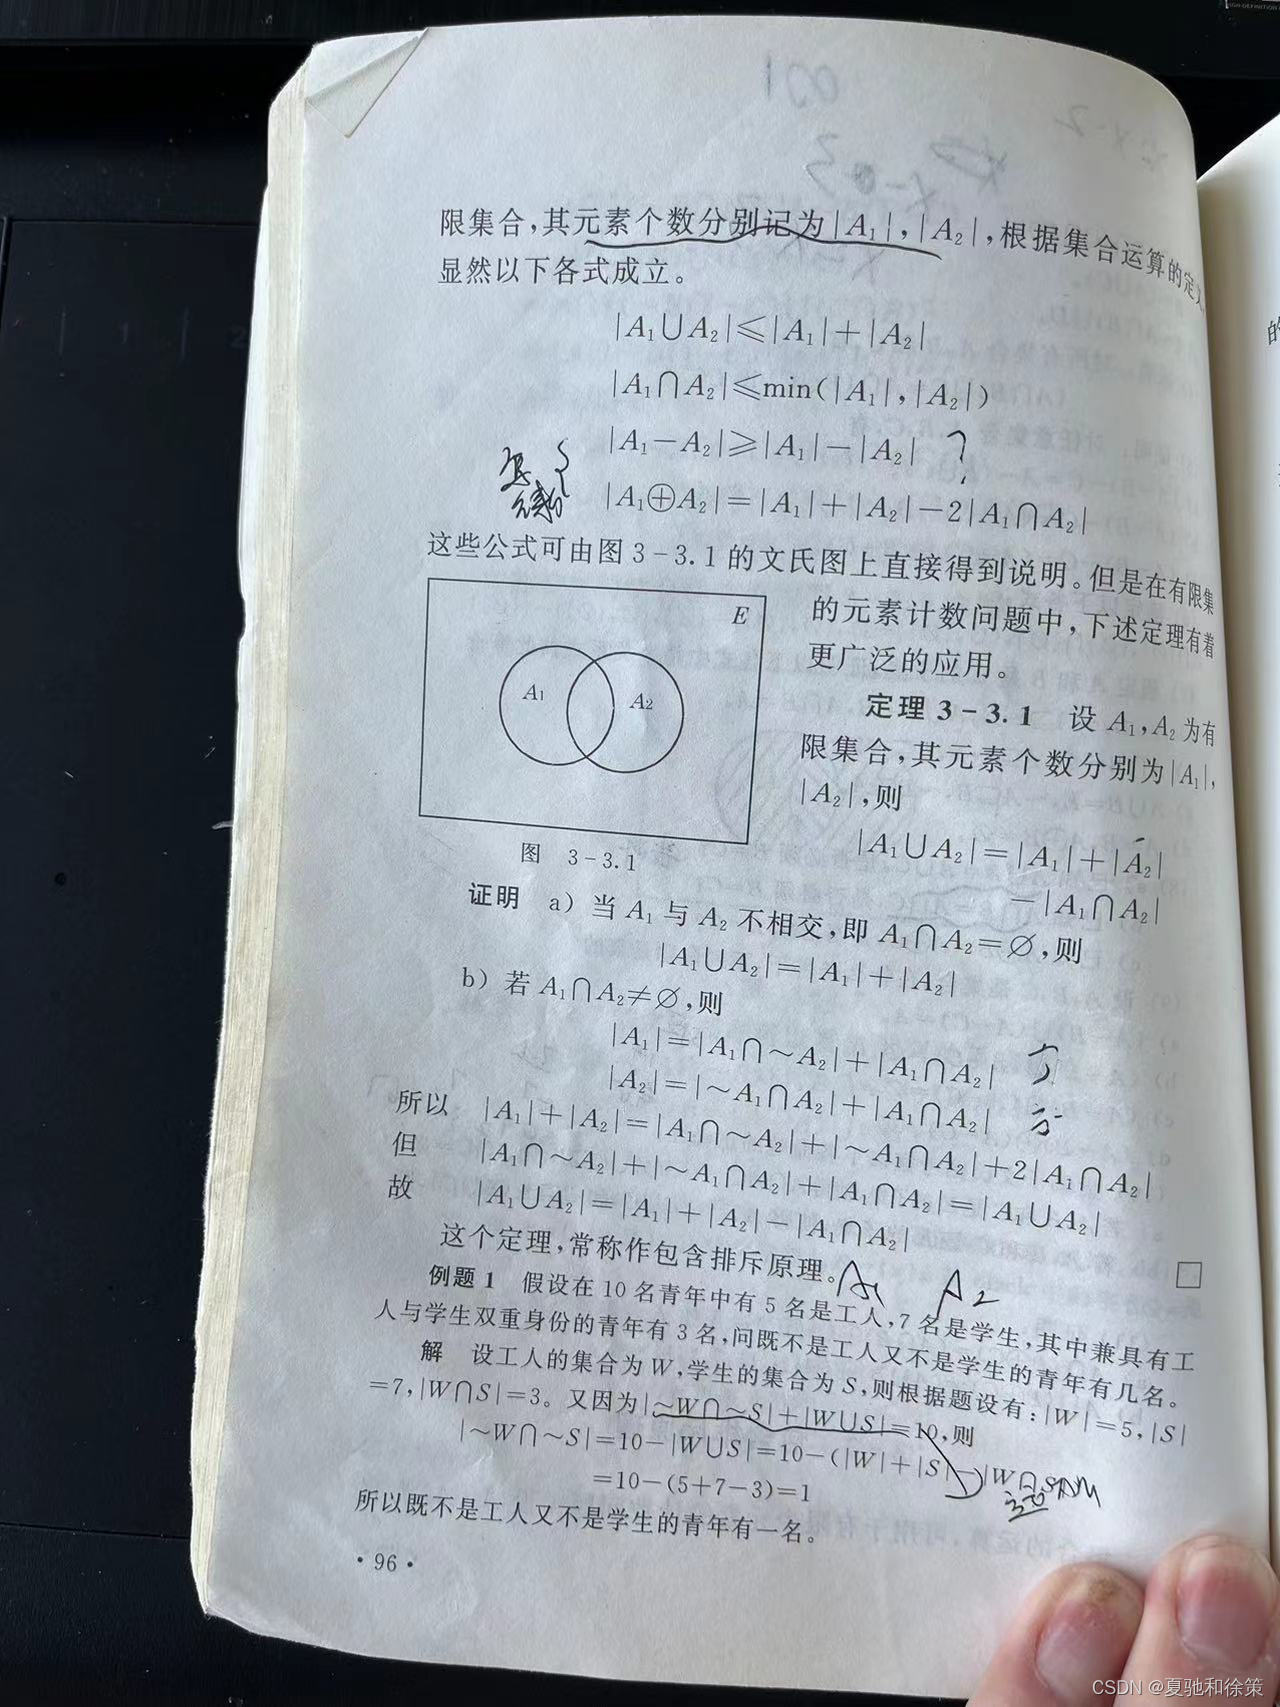 限集合,其元素个数分别记为|A₁|,|A₂|,根据集合运算的定
显然以下各式成立。
|A₁∪A₂|⩽|A₁|+|A₂|
|A₁∩A₂|⩽min(|A₁|,|A₂|)
|A₁-A₂|⩾|A₁|-|A₂| ?
|A₁⊕A₂|=|A₁|+|A₂|-2|A₁∩A₂|
这些公式可由图3-3.1的文氏图上直接得到说明。但是在有限集
的元素计数问题中,下述定理有着
更广泛的应用。
E
A₁ A₂
图 3-3.1
定理3-3.1 设A₁,A₂为有
限集合,其元素个数分别为|A₁|,
|A₂|,则
|A₁∪A₂|=|A₁|+|A₂|
-|A₁∩A₂|
证明 a) 当A₁与A₂不相交,即A₁∩A₂=∅,则
|A₁∪A₂|=|A₁|+|A₂|
b) 若A₁∩A₂≠∅,则
|A₁|=|A₁∩~A₂|+|A₁∩A₂|
|A₂|=|~A₁∩A₂|+|A₁∩A₂|
所以 |A₁|+|A₂|=|A₁∩~A₂|+|~A₁∩A₂|+2|A₁∩A₂|
但 |A₁∩~A₂|+|~A₁∩A₂|+|A₁∩A₂|=|A₁∪A₂|
故 |A₁∪A₂|=|A₁|+|A₂|-|A₁∩A₂|
这个定理,常称作包含排斥原理。 □
A₁ A₂
例题1 假设在10名青年中有5名是工人,7名是学生,其中兼具有工
人与学生双重身份的青年有3名,问既不是工人又不是学生的青年有几名。
解 设工人的集合为W,学生的集合为S,则根据题设有:|W|=5,|S|
=7,|W∩S|=3。又因为|~W∩~S|+|W∪S|=10,则
|~W∩~S|=10-|W∪S|=10-(|W|+|S|-|W∩S|)
=10-(5+7-3)=1
所以既不是工人又不是学生的青年有一名。
·96·
CSDN @夏驰和徐策